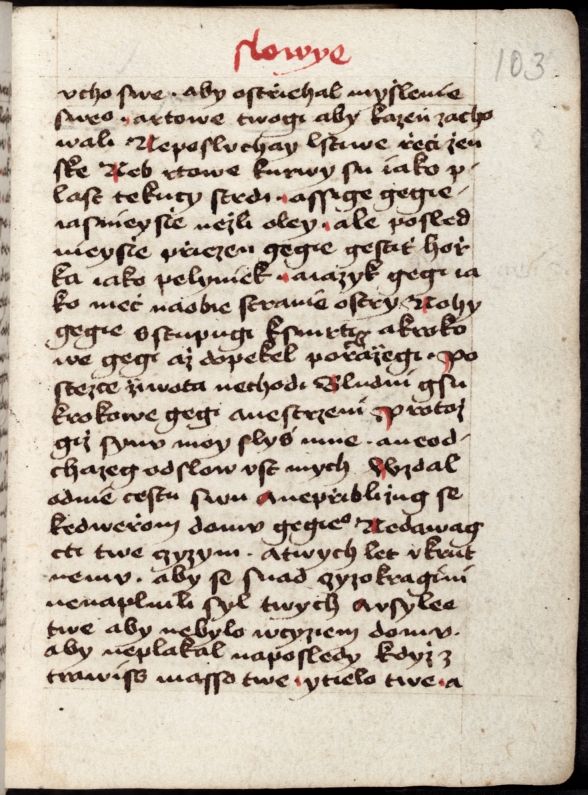 slowye
103
vcho swe · aby ostřiehal myšlenie
sweo · artowe twogi aby kazeň zacho
wali Neposluchay lstiwe řeči žen
ske Neb rtowe kurwy su iako p
last tekucy strdi · assige gegie ·
iasnieysie nežli oley · ale posled
nieysie přiezen gegie gestiť hoř
ka iako pelyniek · aiazyk gegi ia
ko meč naobie stranie ostry Nohy
gegie sstupugi ksmrti akroko
we gegi až dopekel porážegi · Po
stezce žiwota nechodi Bludni gsu
krokowe gegi anestrzeni Protož
giž synu moy slyš mne · aneod-
chazeg odslow vst mych Wzdal
odnie cestu swu anepřibližug se
kedweřom domu gegieo Nedawag
cti twe czyzym · atwych let vkrut
nemu · aby se snad czyzokragini
nenaplnili syl twych Avsyle
twe aby nebylo wcyziem domu ·
aby neplakal naposledy když z
trawiss masso twe · ytielo twe · a